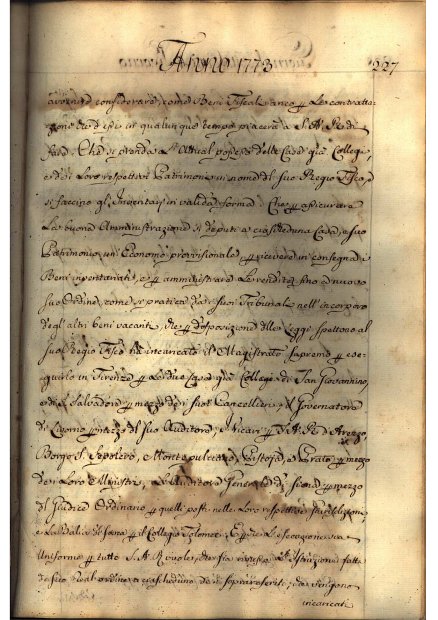 Anno 1773
227
avere a considerare, come Beni Fiscali anco p. le contratta-
zioni che di essi in qualunque tempo piacerà a S.A.R. di
fare. Che si prenda l'attual possesso delle Case già Collegi,
e di loro respettivi Patrimoni in nome del suo Regio Fisco, e
si faccino gl'Inventari in valida forma. Che p. assicurare
la buona Amministrazione si deputi a ciascheduna Casa, e suo
Patrimonio un Economo provvisionale, p. ricevere in consegna i
Beni inventariati, e p. amministrare le rendite fino a nuovo
suo Ordine, come si pratica da' suoi Tribunali nell'incorporo
degl'altri beni vacanti, che p. disposizione delle Leggi spettano al
suo Regio Fisco ha incaricato il Magistrato Supremo p. ese-
guirlo in Firenze p. le due Case già Collegi di San Giovannino,
e di S. Salvadore p. mezzo de' suoi Cancellieri; il Governatore
di Livorno p. mezzo del suo Auditore, i Vicari p. S.A.R. d'Arezzo,
Borgo S. Sepolcro, Montepulciano, Pistoja, e Prato p. mezzo
de' loro Ministri, e l'Auditore Generale di Siena p. mezzo
del Giudice Ordinario p. quelli posti nelle loro respettive Giurisdizioni,
e la Balia di Siena p. il Collegio Tolomei. E p. che l'esecuzione sia
Uniforme p. tutto S.A.R. vuole, che sia ripresa l'Istruzione fatta
di suo Real ordine a ciascheduno dei sopraiscritti, che vengono
incaricati